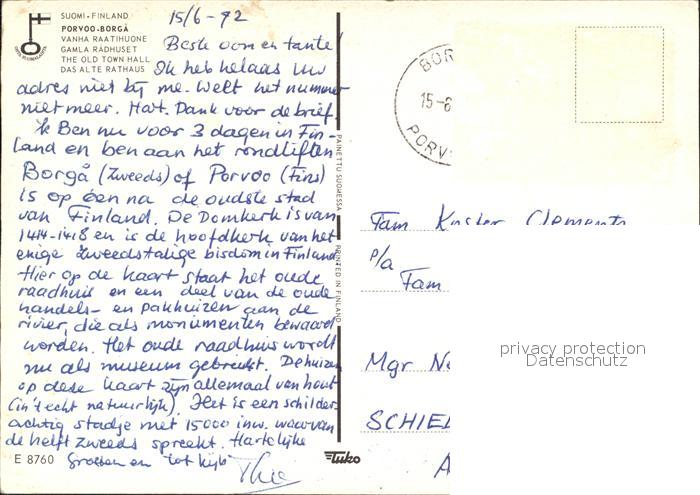 SUOMI • FINLAND
PORVOO-BORGÅ
VANHA RAATIHUONE
GAMLA RÅDHUSET
THE OLD TOWN HALL
DAS ALTE RATHAUS
15/6-92
Beste oom en tante!
Ik heb helaas uw
adres niet bij me. Welt het nummer
niet meer. Hart. Dank voor de brief.
Ik Ben nu voor 3 dagen in Fin-
land en ben aan het rondliften
Borgå (Zweeds) of Porvoo (Fins)
is op één na de oudste stad
van Finland. De Domkerk is van
1414-1418 en is de hoofdkerk van het
enige zweedstalige bisdom in Finland
Hier op de kaart staat het oude
raadhuis en een deel van de oude
handels- en pakhuizen aan de
rivier, die als monumenten bewaard
worden. Het oude raadhuis wordt
nu als museum gebruikt. De huizen
op deze kaart zijn allemaal van hout
(in 't echt natuurlijk). Het is een schilder-
achtig stadje met 15000 inw. waarvan
de helft zweeds spreekt. Hartelijke
Groeten en "tot kijk"
Theo
E 8760
PAINETTU SUOMESSA
PRINTED IN FINLAND
Tuko
BOR
15-6
PORV
Fam Koster Clements
p/a
Fam
Mgr
SCHIE
privacy protection
Datenschutz